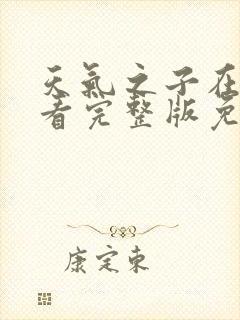 天氣之子在
看完整版免
康定東